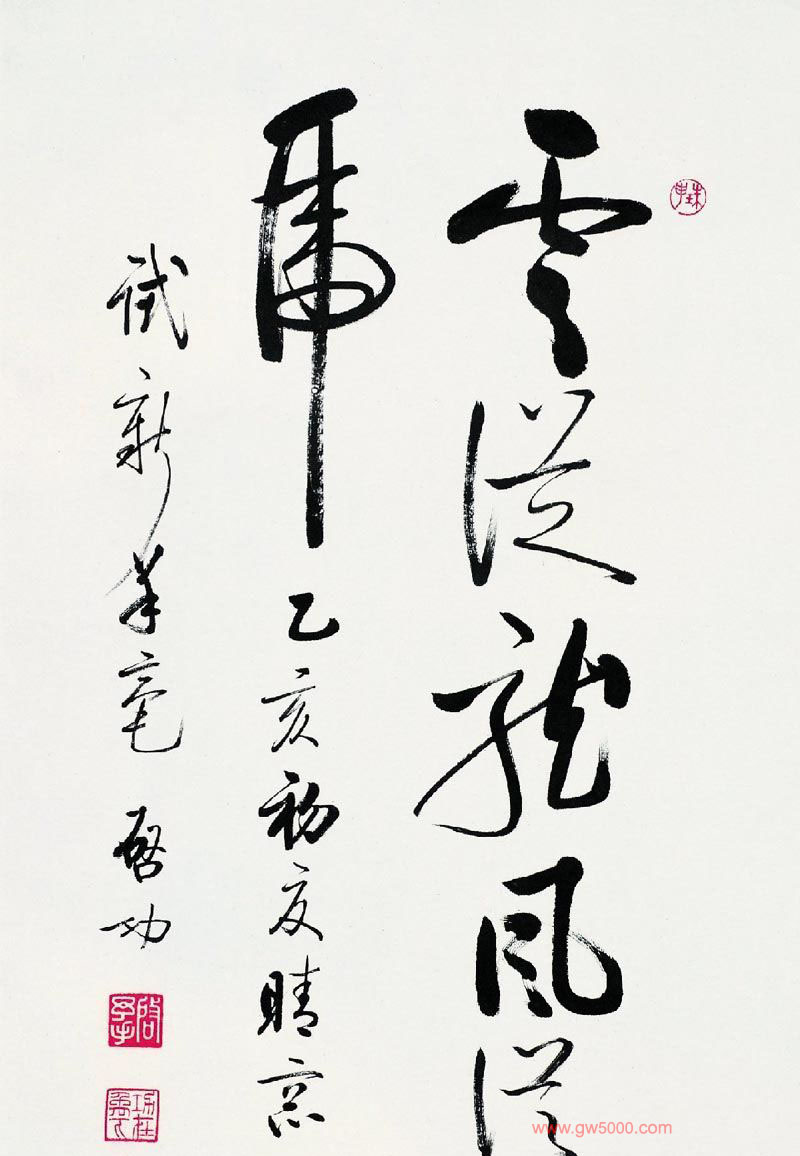 雲從龍風從
虎
乙亥初夏晴窓
試新羊毫 啓功
www.gw5000.com